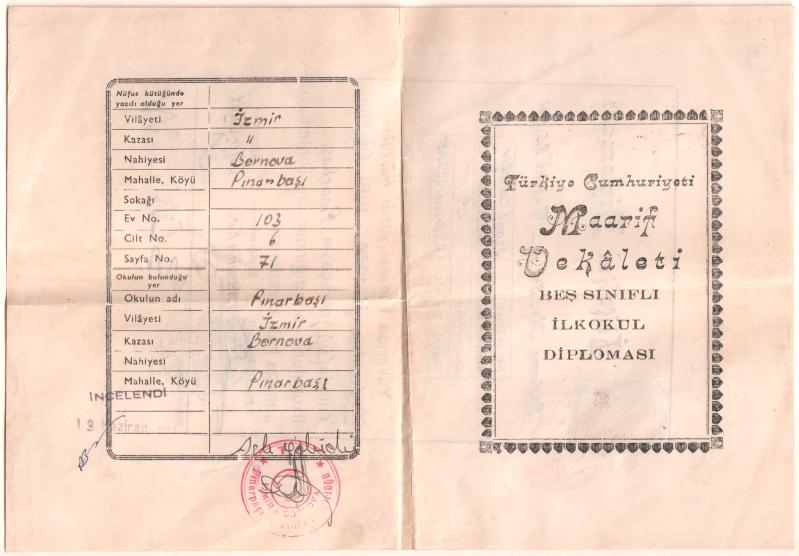 Nüfus kütüğünde
yazılı olduğu yer
Vilâyeti İzmir
Kazası "
Nahiyesi Bornova
Mahalle, Köyü Pınarbaşı
Sokağı
Ev No. 103
Cilt No. 6
Sayfa No. 71
Okulun bulunduğu
yer
Okulun adı Pınarbaşı
Vilâyeti İzmir
Kazası Bornova
Nahiyesi
Mahalle, Köyü Pınarbaşı
İNCELENDİ
13 Haziran
Aslı gibidir
Türkiye Cumhuriyeti
Maarif
Vekâleti
BEŞ SINIFLI
İLKOKUL
DİPLOMASI